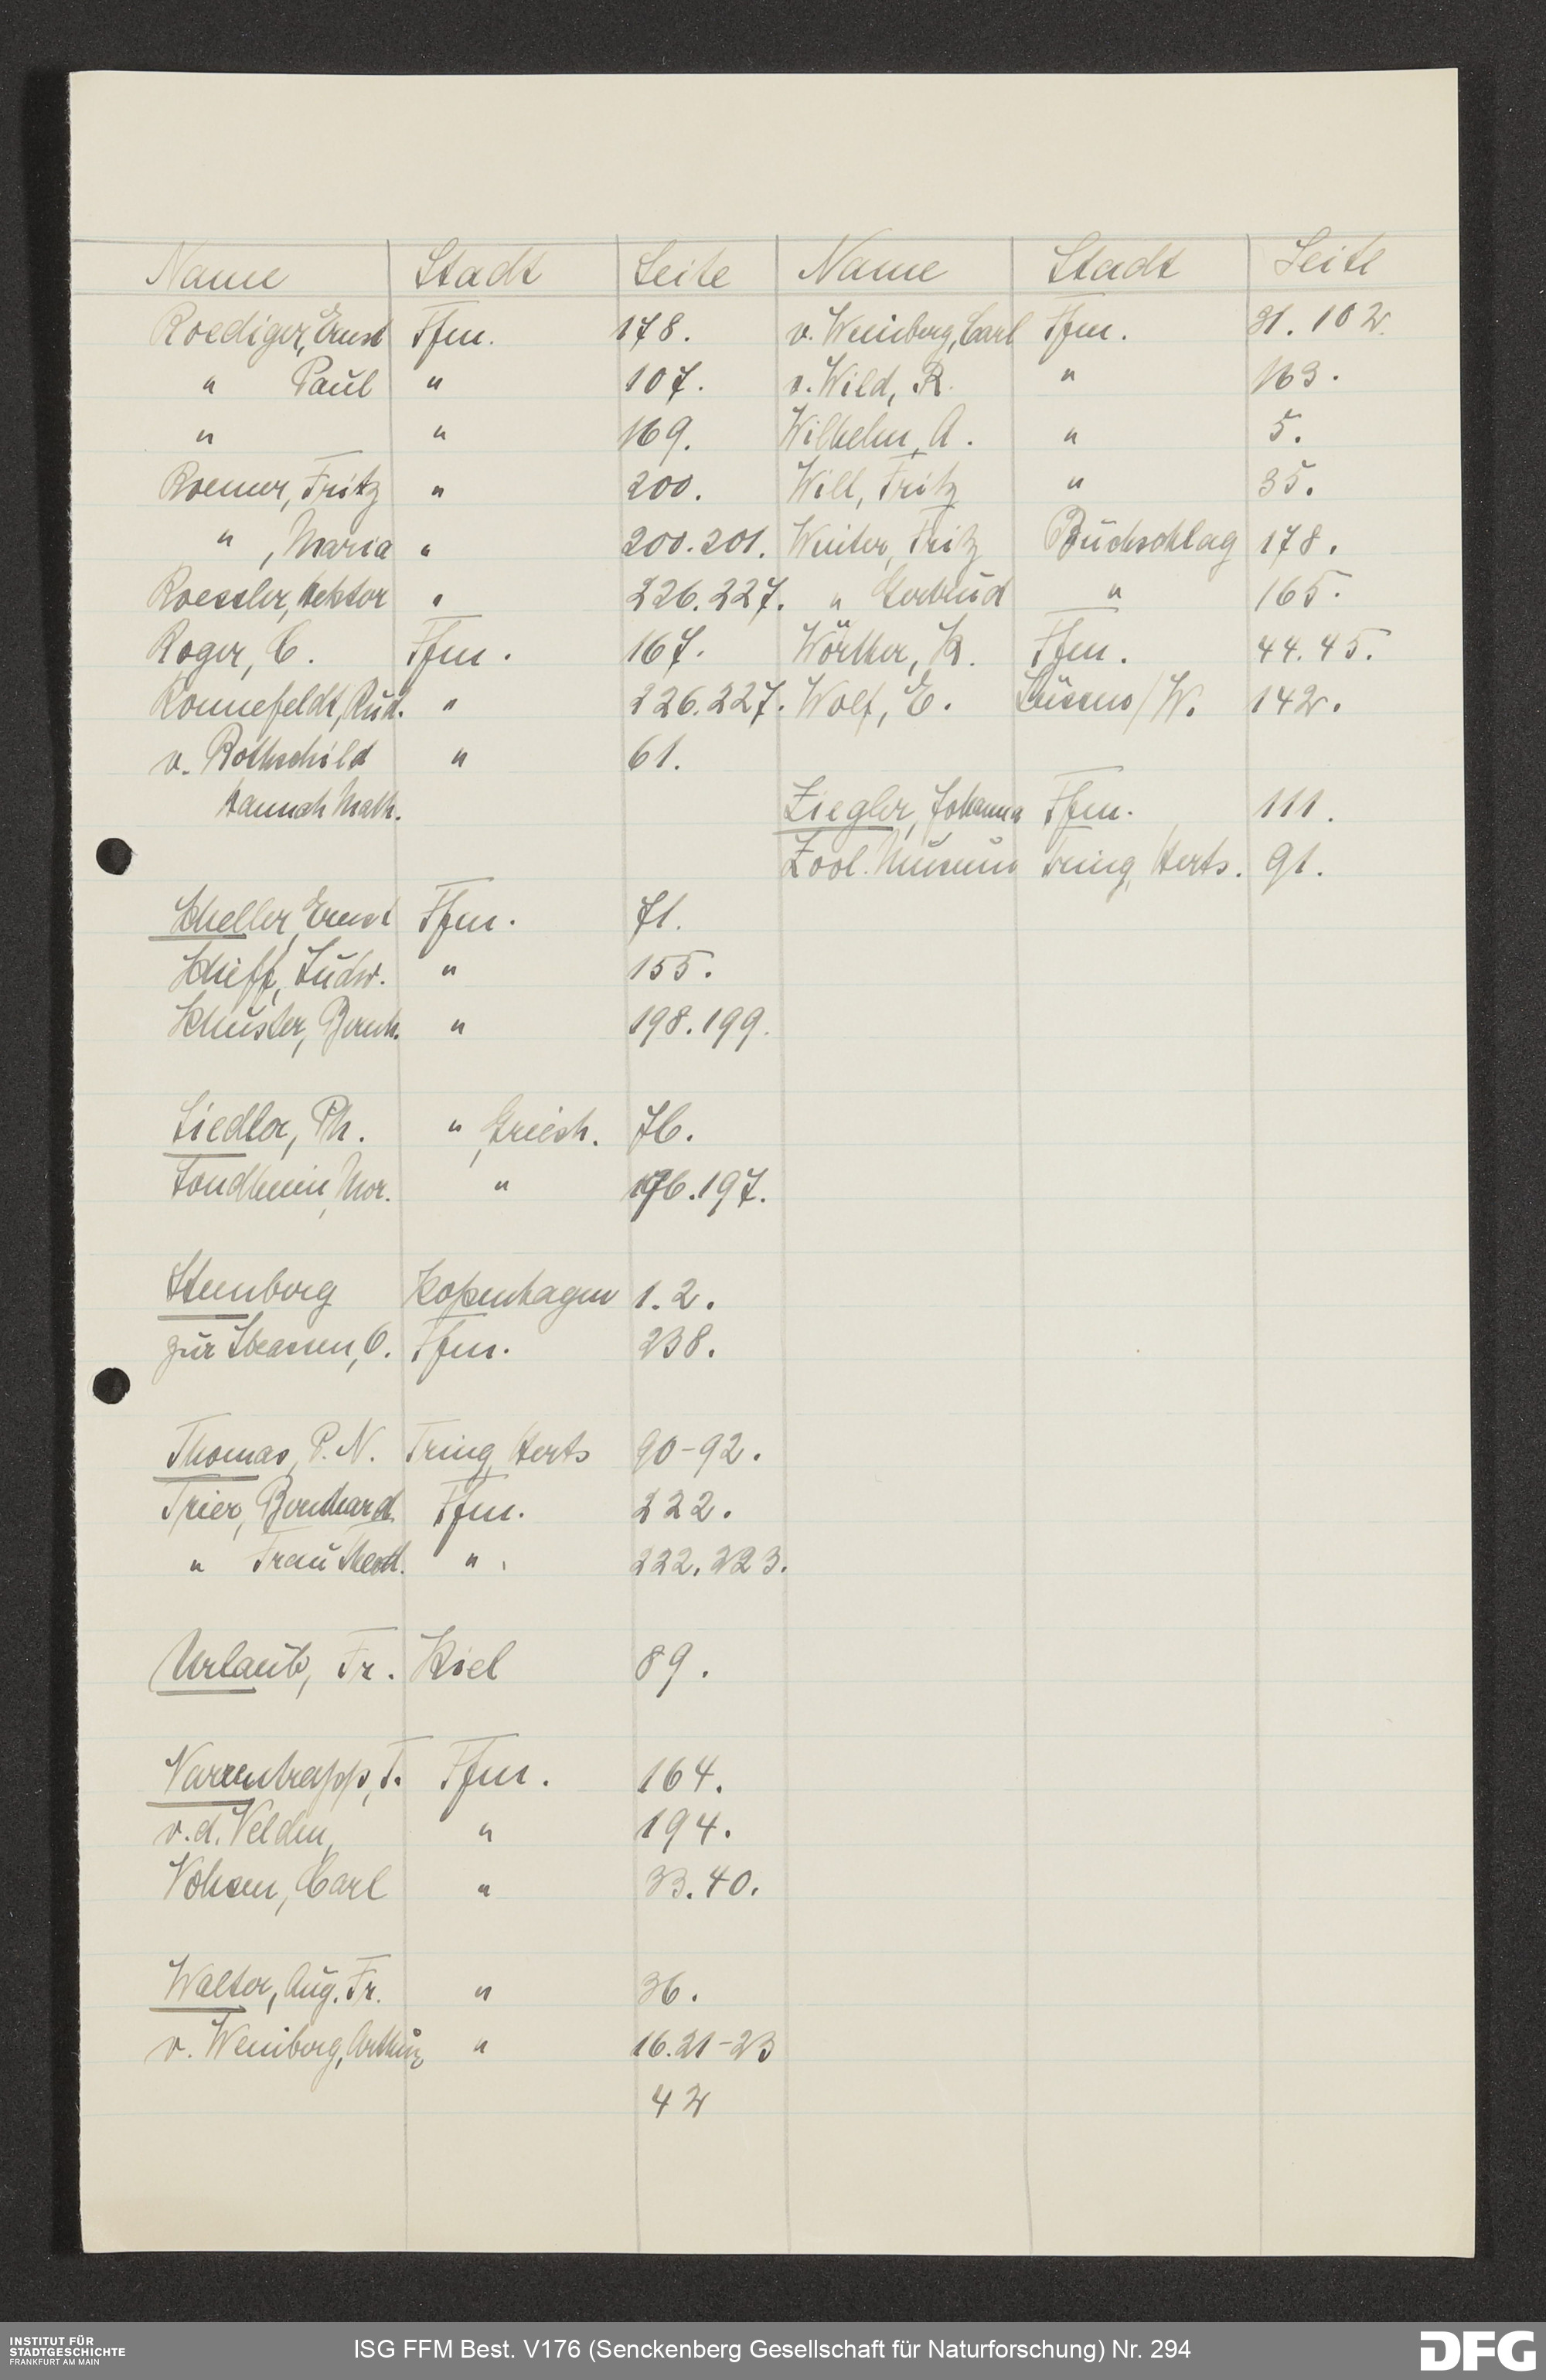 Name Stadt Seite
Roediger, Ernst Ffm. 178.
" Paul " 107.
" " 169.
Roemer, Fritz " 200.
" , Maria " 200.201.
Roessler, Hektor " 226.227.
Roger, C. Ffm. 167.
Ronnefeldt, Rud. " 226.227.
v. Rothschild " 61.
Hannah Math.
Scheller, Ernst Ffm. 71.
Schiff, Ludw. " 155.
Schuster, Bernh. " 198.199.
Siedler, Ph. " , Griesh. 76.
Sondheim, Mor. " 196.197.
Steenberg Kopenhagen 1.2.
zur Strassen, O. Ffm. 238.
Thomas, P. N. Tring, Herts 90-92.
Trier, Bernhard Ffm. 222.
" Frau " 222.223.
Urlaub, Fr. Kiel 89.
Varrentrapp, F. Ffm. 164.
v. d. Velden, " 194.
Vohsen, Carl " 33.40.
Walter, Aug. Fr. " 36.
v. Weinberg, Arthur " 16.21-23
42
Name Stadt Seite
v. Weinberg, Carl Ffm. 31.102.
v. Wild, R. " 163.
Wilhelm, A. " 5.
Will, Fritz " 35.
Winter, Fritz Buchschlag 178.
" Gertrud " 165.
Wörther, K. Ffm. 44.45.
Wolf, E. /W. 142.
Ziegler, Johanna Ffm. 111.
Zool. Museum Tring, Herts. 91.
INSTITUT FÜR
STADTGESCHICHTE
FRANKFURT AM MAIN
ISG FFM Best. V176 (Senckenberg Gesellschaft für Naturforschung) Nr. 294
DFG